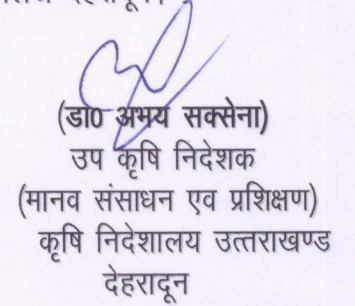 (डा0 अभय सक्सेना)
उप कृषि निदेशक
(मानव संसाधन एव प्रशिक्षण)
कृषि निदेशालय उत्तराखण्ड
देहरादून